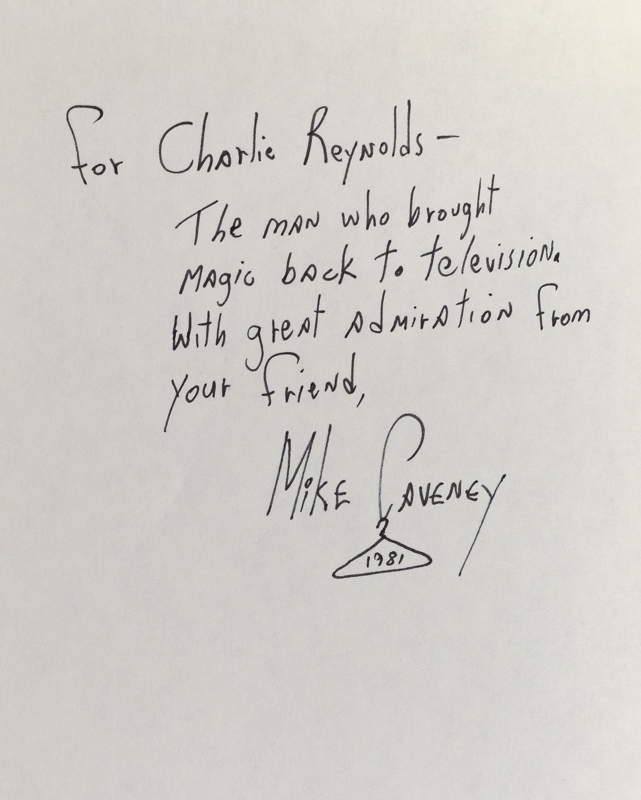 For Charlie Reynolds—
The man who brought
magic back to television.
With great admiration from
your friend,
Mike Caveney
1981